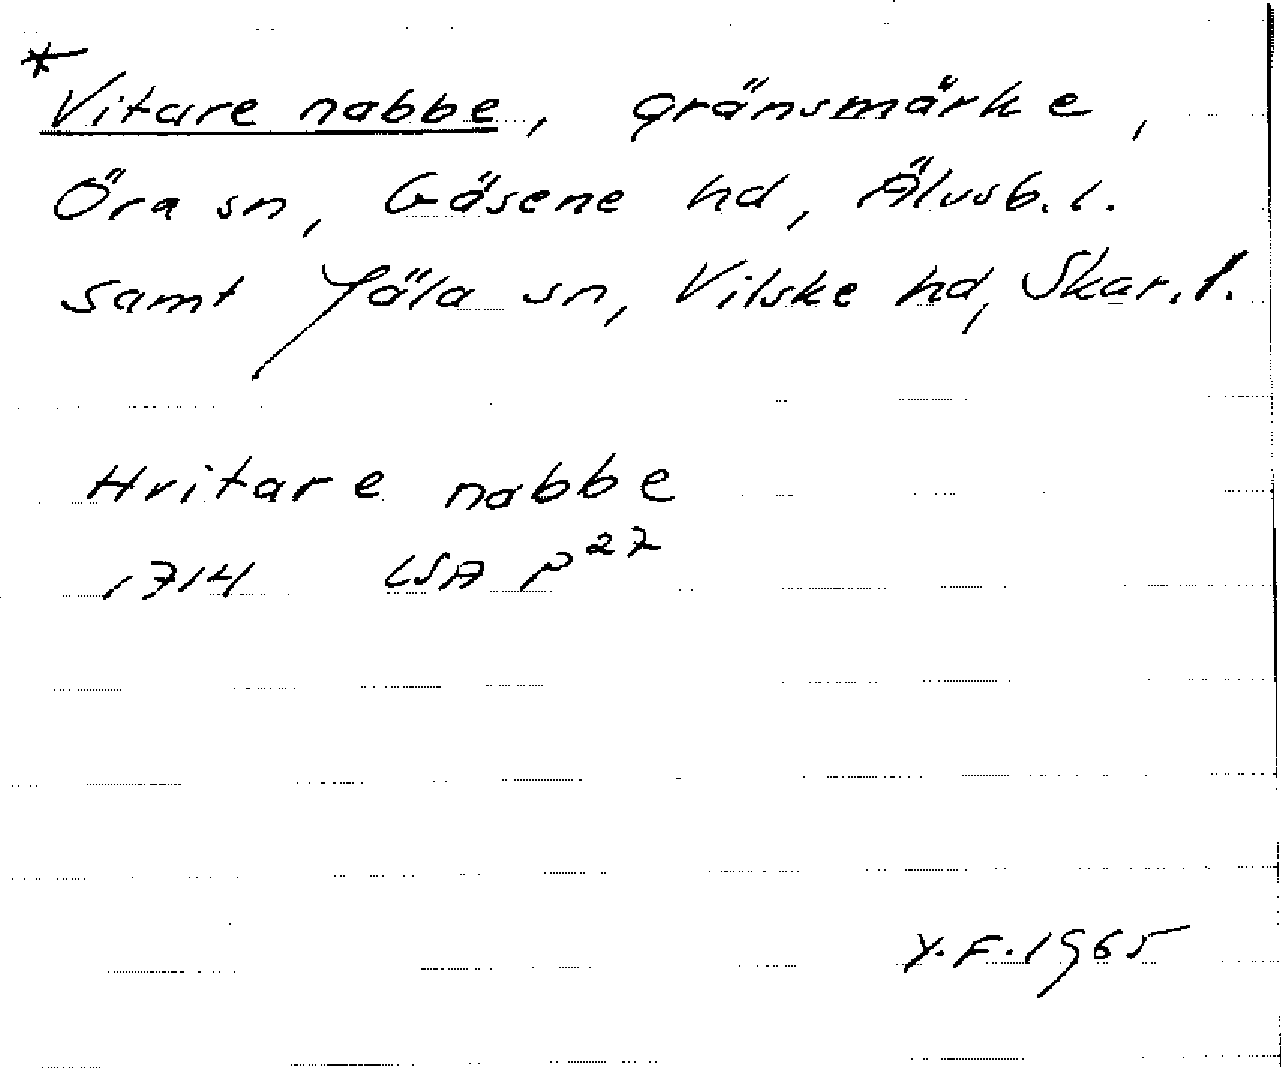 *
Vitare nabbe, gränsmärke,
Öra sn, Gäsene hd, Älvsb. l.
samt Jäla sn, Vilske hd, Skar. l.
Hvitare nabbe
1714 LSA P²⁷
Y.F. 1965